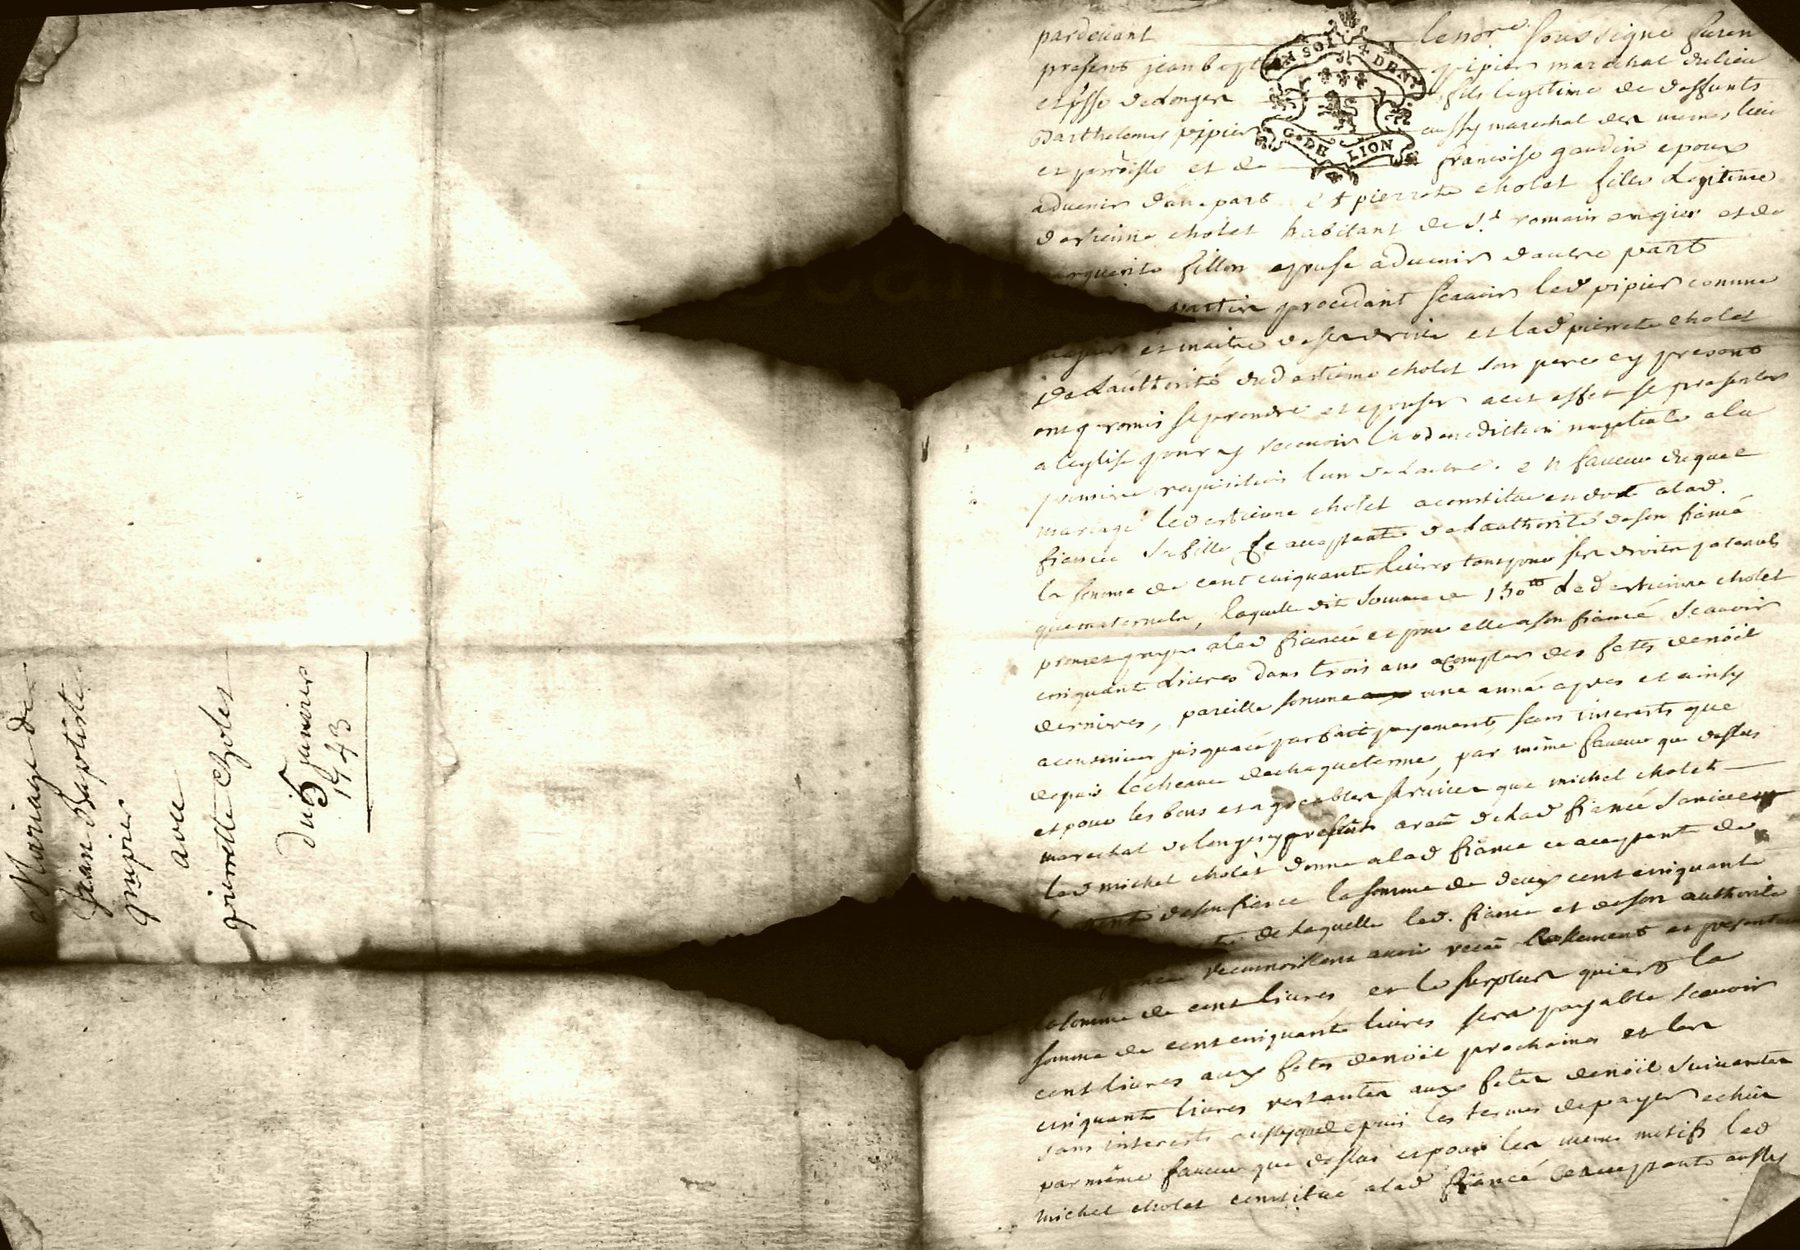 Mariage de
Jean Baptiste
pipier
avec
pierrette Cholet
du 5 janvier
1743
EN SOLS 4 DEN.
G. DE LION
pardevant le nore soussigné furen
presents jean bapt pipier marechal du lieu
et psse de longes fils legitime de deffunts
barthelemy pipier aussy marechal des memes lieu
et parroisse et de francoise gaudin epoux
advenir d'une part et pierrete cholet fille legitime
d'estienne cholet habitant de st romain en gier et de
fillon epouse advenir d'autre part
procedant scavoir led pipier comme
et maitre de ses droits et lad pierrete cholet
de l'authorité dud estienne cholet son pere cy present
ont promis se prendre et epouser a cet effet se presenter
a l'eglise pour y recevoir la benediction nuptiale a la
premiere requisition l'un de l'autre. en faveur duquel
mariage led estienne cholet a constitué en dot a lad.
fiancée sa fille ce acceptante de l'authorité de son fiancé
la somme de cent cinquante livres tant pour ses droits paternels
que maternels, laquelle dit somme de 150tt led estienne cholet
promet payer a lad fiancée et pour elle a son fiancé scavoir
cinquante livres dans trois ans a compter des fetes de noël
dernieres, pareille somme une année apres et ainsy
a continuer jusqu'a parfait payement, sans interests que
depuis l'echeance de chaque terme, par même faveur que dessus
et pour les bons et agreables services que michel cholet
marechal de longes y present a receu de lad fiancée sa niece
led michel cholet donne a lad fiancée ce acceptante de
de son fiancé la somme de deux cent cinquante
de laquelle led. fiancé et de son authorité
reconnoissent avoir receu reellement et presentement
la somme de cent livres et le surplus quiest la
somme de cent cinquante livres sera payable scavoir
cent livres aux fetes de noël prochaines et les
cinquante livres restantes aux fetes de noël suivantes
sans interests que depuis les termes de payer echus
par même faveur que dessus et pour les memes motifs led
michel cholet constitué a lad fiancée ce acceptante aussy